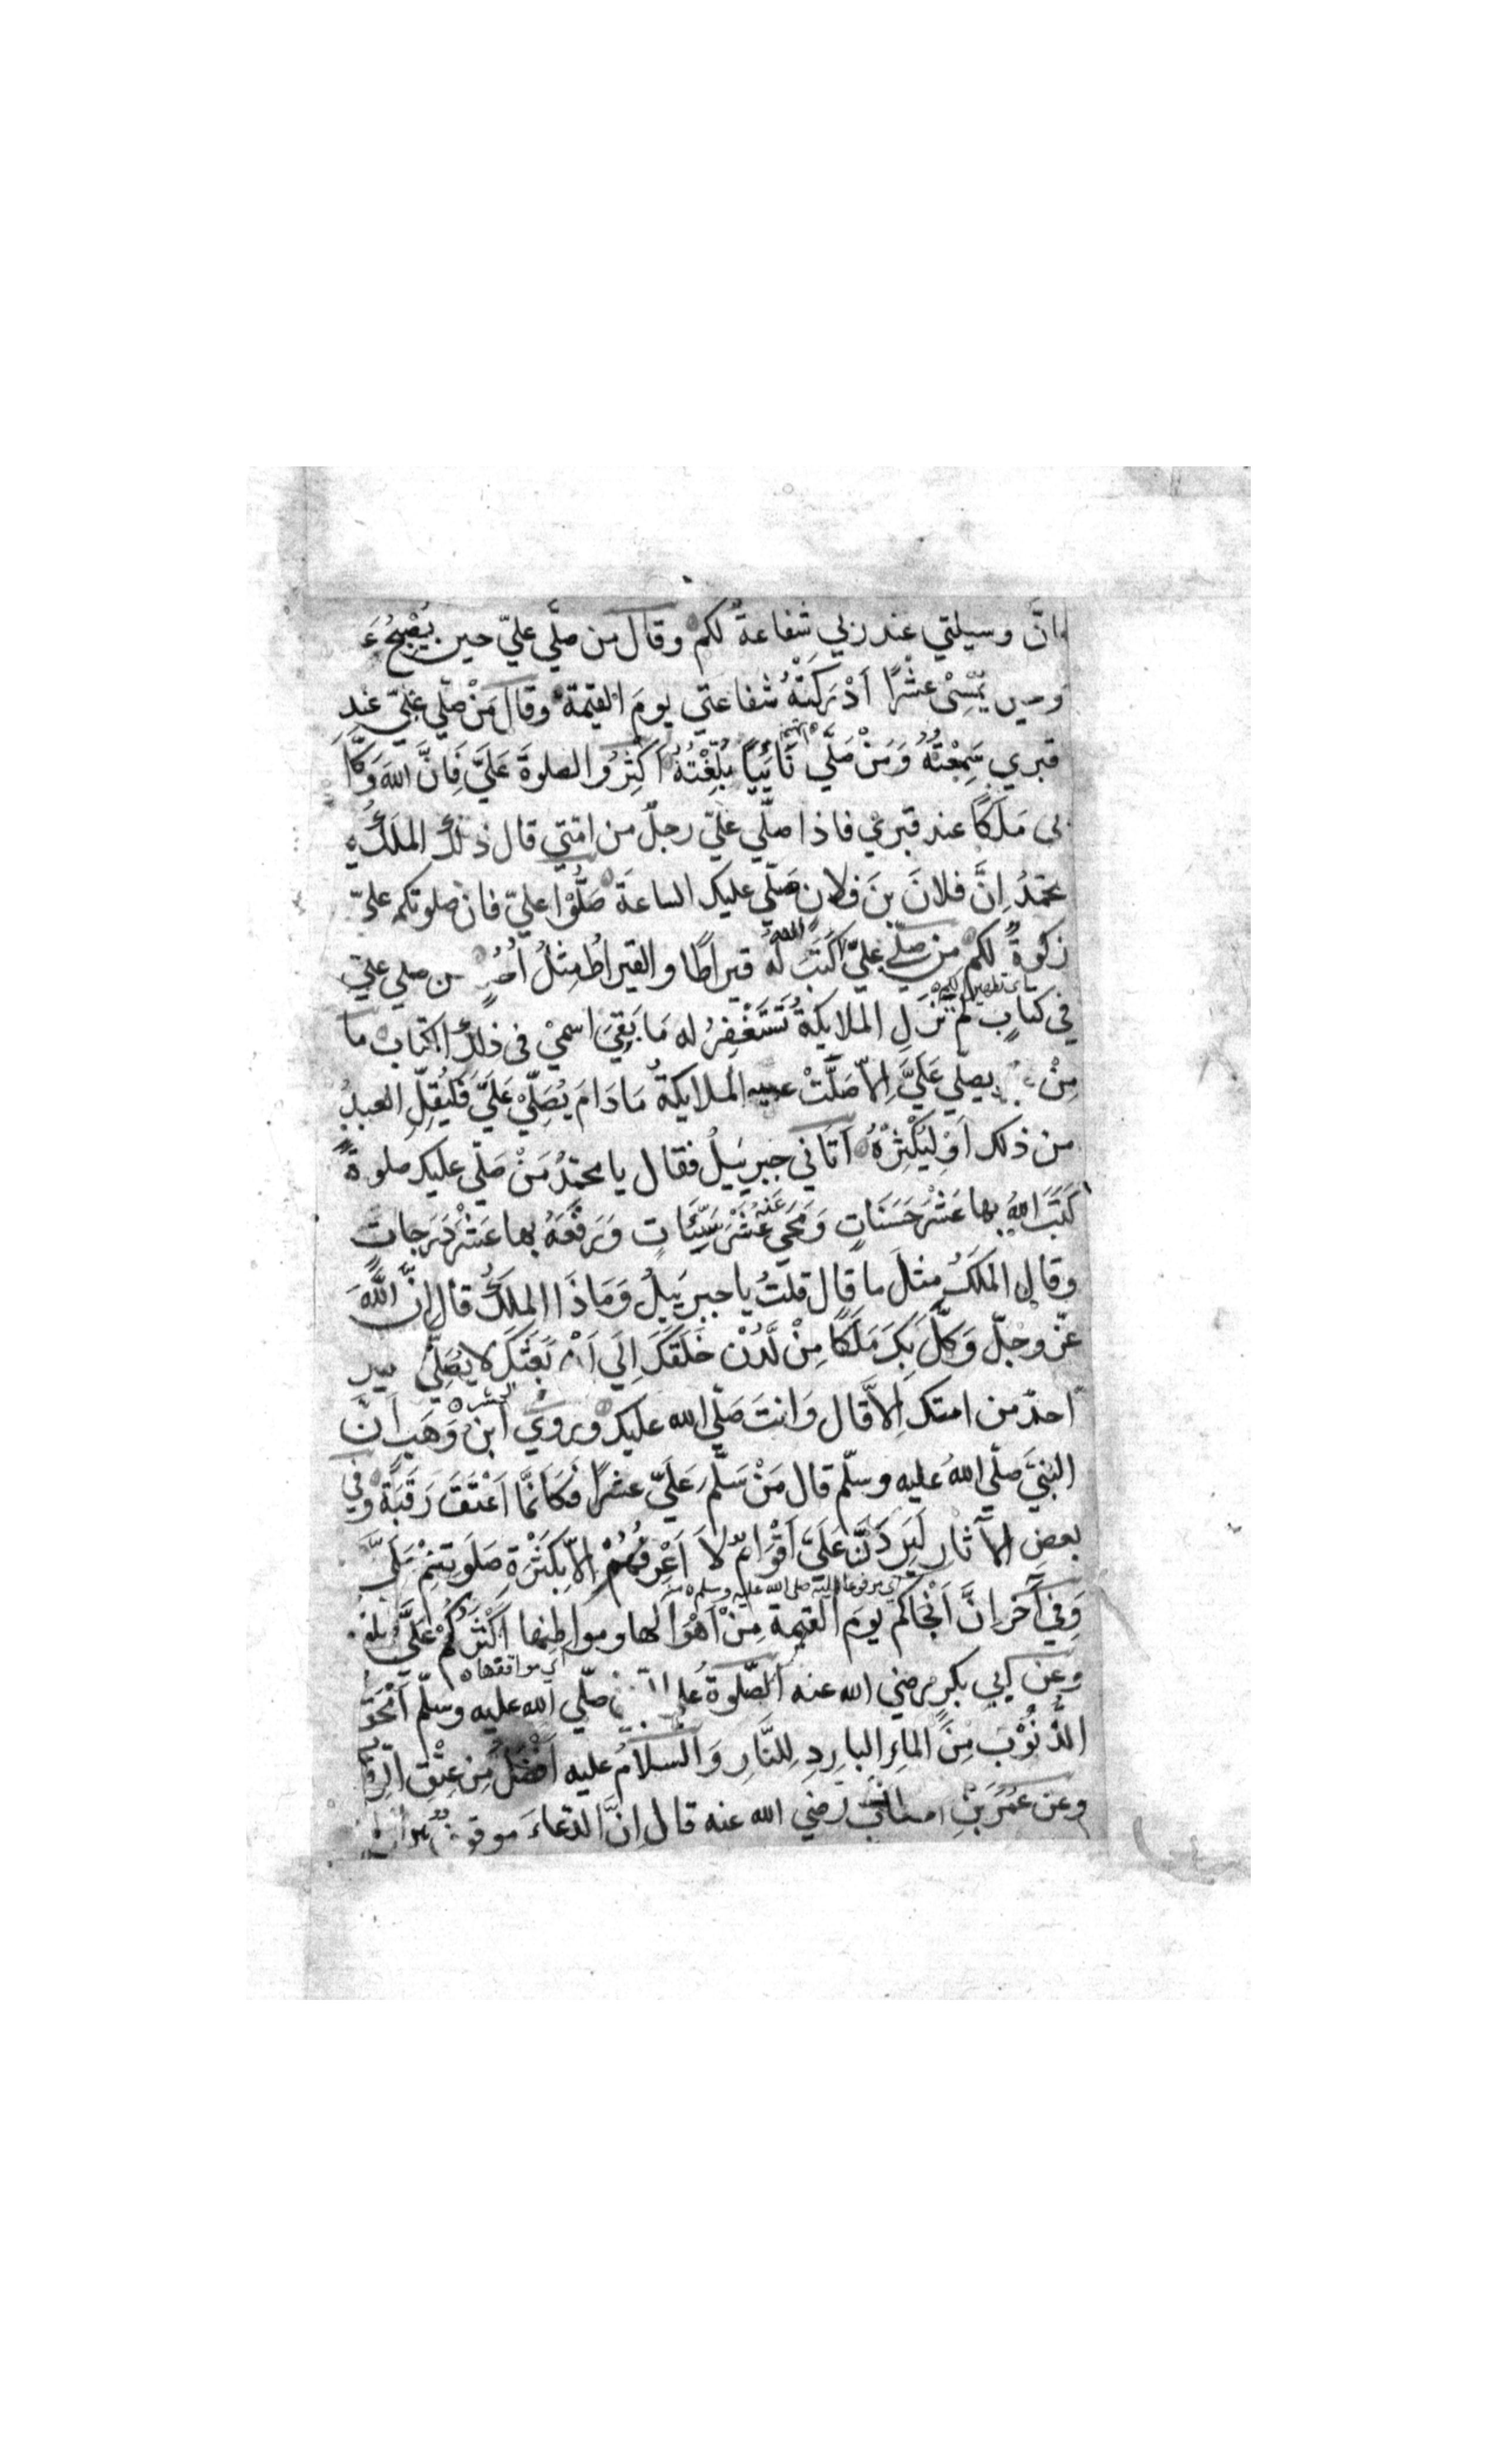 انَّ وسيلتي عند ربي شفاعةٌ لكم وقال من صلّي عليّ حين يُصْبِحُ عَ
وحين يُمْسِيْ عشْرًا اَدْرَكَتْهُ شفاعتي يومَ القيمة وقال مَنْ صلّي عليّ عند
قبري سَمِعْتُهُ وَمَنْ صَلَّي نَائِيًا بُلِّغْتُهُ اَكْثِرُوا الصلوةَ عَلَيَّ فَاِنَّ اللهَ وَكَّلَ
بي مَلَكًا عند قبري فاذا صلّي عليّ رجلٌ من امّتي قال ذلك الملَكُ يا
محمّدُ اِنَّ فلانَ بنَ فلانٍ صَلّي عليك الساعةَ صَلُّوْا عليّ فان صلوتكم عليّ
زكوةٌ لكم من صلّي عليّ كَتَبَ اللهُ له قيراطًا والقيراطُ مِثلُ اُحُدٍ من صلي عليّ
في كتابٍ لم تَزَلِ الملايكةُ تَسْتَغْفِرُ له مَا بَقِيَ اسميْ في ذلك الكتاب ما
مِنْ يصلّي عَلَيَّ اِلاّ صَلَّتْ عليه الملايكةُ مَادَامَ يُصَلِّيْ عَلَيَّ فَلْيُقِلِّ العبدُ
من ذلك اَوْ لِيُكْثِرْهُ اَتَاني جبرييلُ فقال يا محمّدُ مَنْ صَلّي عليك صلوةً
كَتَبَ اللهُ بها عَشْرَ حَسَنَاتٍ وَمَحَي عَنْهُ عَشْرَ سَيِّئَاتٍ وَرَفَعَهُ بها عَشْرَ دَرَجاتٍ
وقال المَلَكُ مثلَ ما قال قلتُ يا جبرييلُ وَمَا ذَا الملَكُ قال اِنَّ اللّٰهَ
عزّ وجلّ وَكَّلَ بِكَ مَلَكًا مِنْ لَّدُنْ خَلَقَكَ اِلَي اَنْ بَعَثَكَ لا يُصَلِّي عليك
احدٌ من امتك اِلاَّ قال وَانتَ صَلّي الله عليك ورَوي ابن وَهَبٍ اَنَّ
النبيَّ صلّي اللهُ عليه وسلّم قال مَنْ سَلَّمَ عَلَيّ عشرًا فَكَاَنَّمَا اَعْتَقَ رَقَبَةً وفي
بعضِ الاٰثار لَيَرِدَنَّ عَلَيَّ اَقْوَامٌ لاَ اَعْرِفُهُمْ اِلاّ بِكَثْرَةِ صَلَوتِهِمْ عَلَيَّ
اي مرفوعا اليه صلي الله عليه وسلم
وَفي آخَر انَّ اَنْجَاكم يومَ القيمةِ مِنْ اَهْوَالها ومواطِنِها اَكْثَرُكُمْ عَلَيَّ صلوةً
اي مواقفها
وعن ابي بكر رضي الله عنه الصّلوةُ علي النبيّ صلّي الله عليه وسلّم اَمْحَقُ
للذُّنُوْبَ مِنَ الماءِ البارِدِ لِلنَّارِ وَالسلامُ عليه اَفْضَلُ مِن عِتْق الرِّقاب
وعن عُمَرَ بْنِ الخطاب رضي الله عنه قال اِنَّ الدّعاءَ موقوفٌ بين